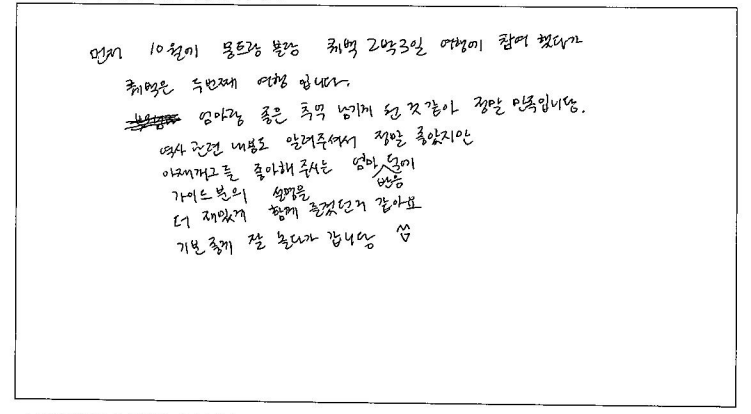 먼저 10월에 몽트랑블랑 퀘벡 2박3일 여행에 참여했다가
퀘벡은 두번째 여행입니다.
엄마랑 좋은 추억 남기게 된 것 같아 정말 만족입니당.
역사 관련 내용도 알려주셔서 정말 좋았지만
아재개그를 좋아해 주시는 엄마 반응 덕에
가이드 분의 설명을
더 재밌게 함께 즐겼던거 같아요
기분 좋게 잘 놀다가 갑니당 ^^